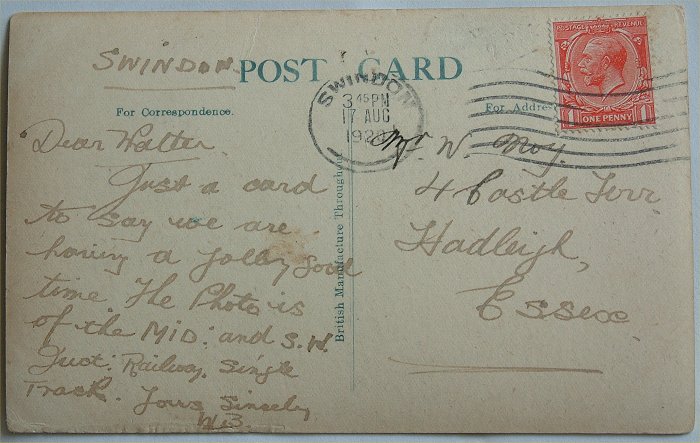 SWINDON.
POST CARD
For Correspondence.
For Address
SWINDON
3 45 PM
17 AUG
POSTAGE REVENUE
1 ONE PENNY 1
Dear Walter.
Just a card
to say we are
having a Jolly good
time. The Photo is
of the MID: and S.W.
Junct: Railway. Single
Track. Yours Sincely
W.B.
British Manufacture Throughout
Mr W. Moy.
4 Castle Terr
Hadleigh,
Essex